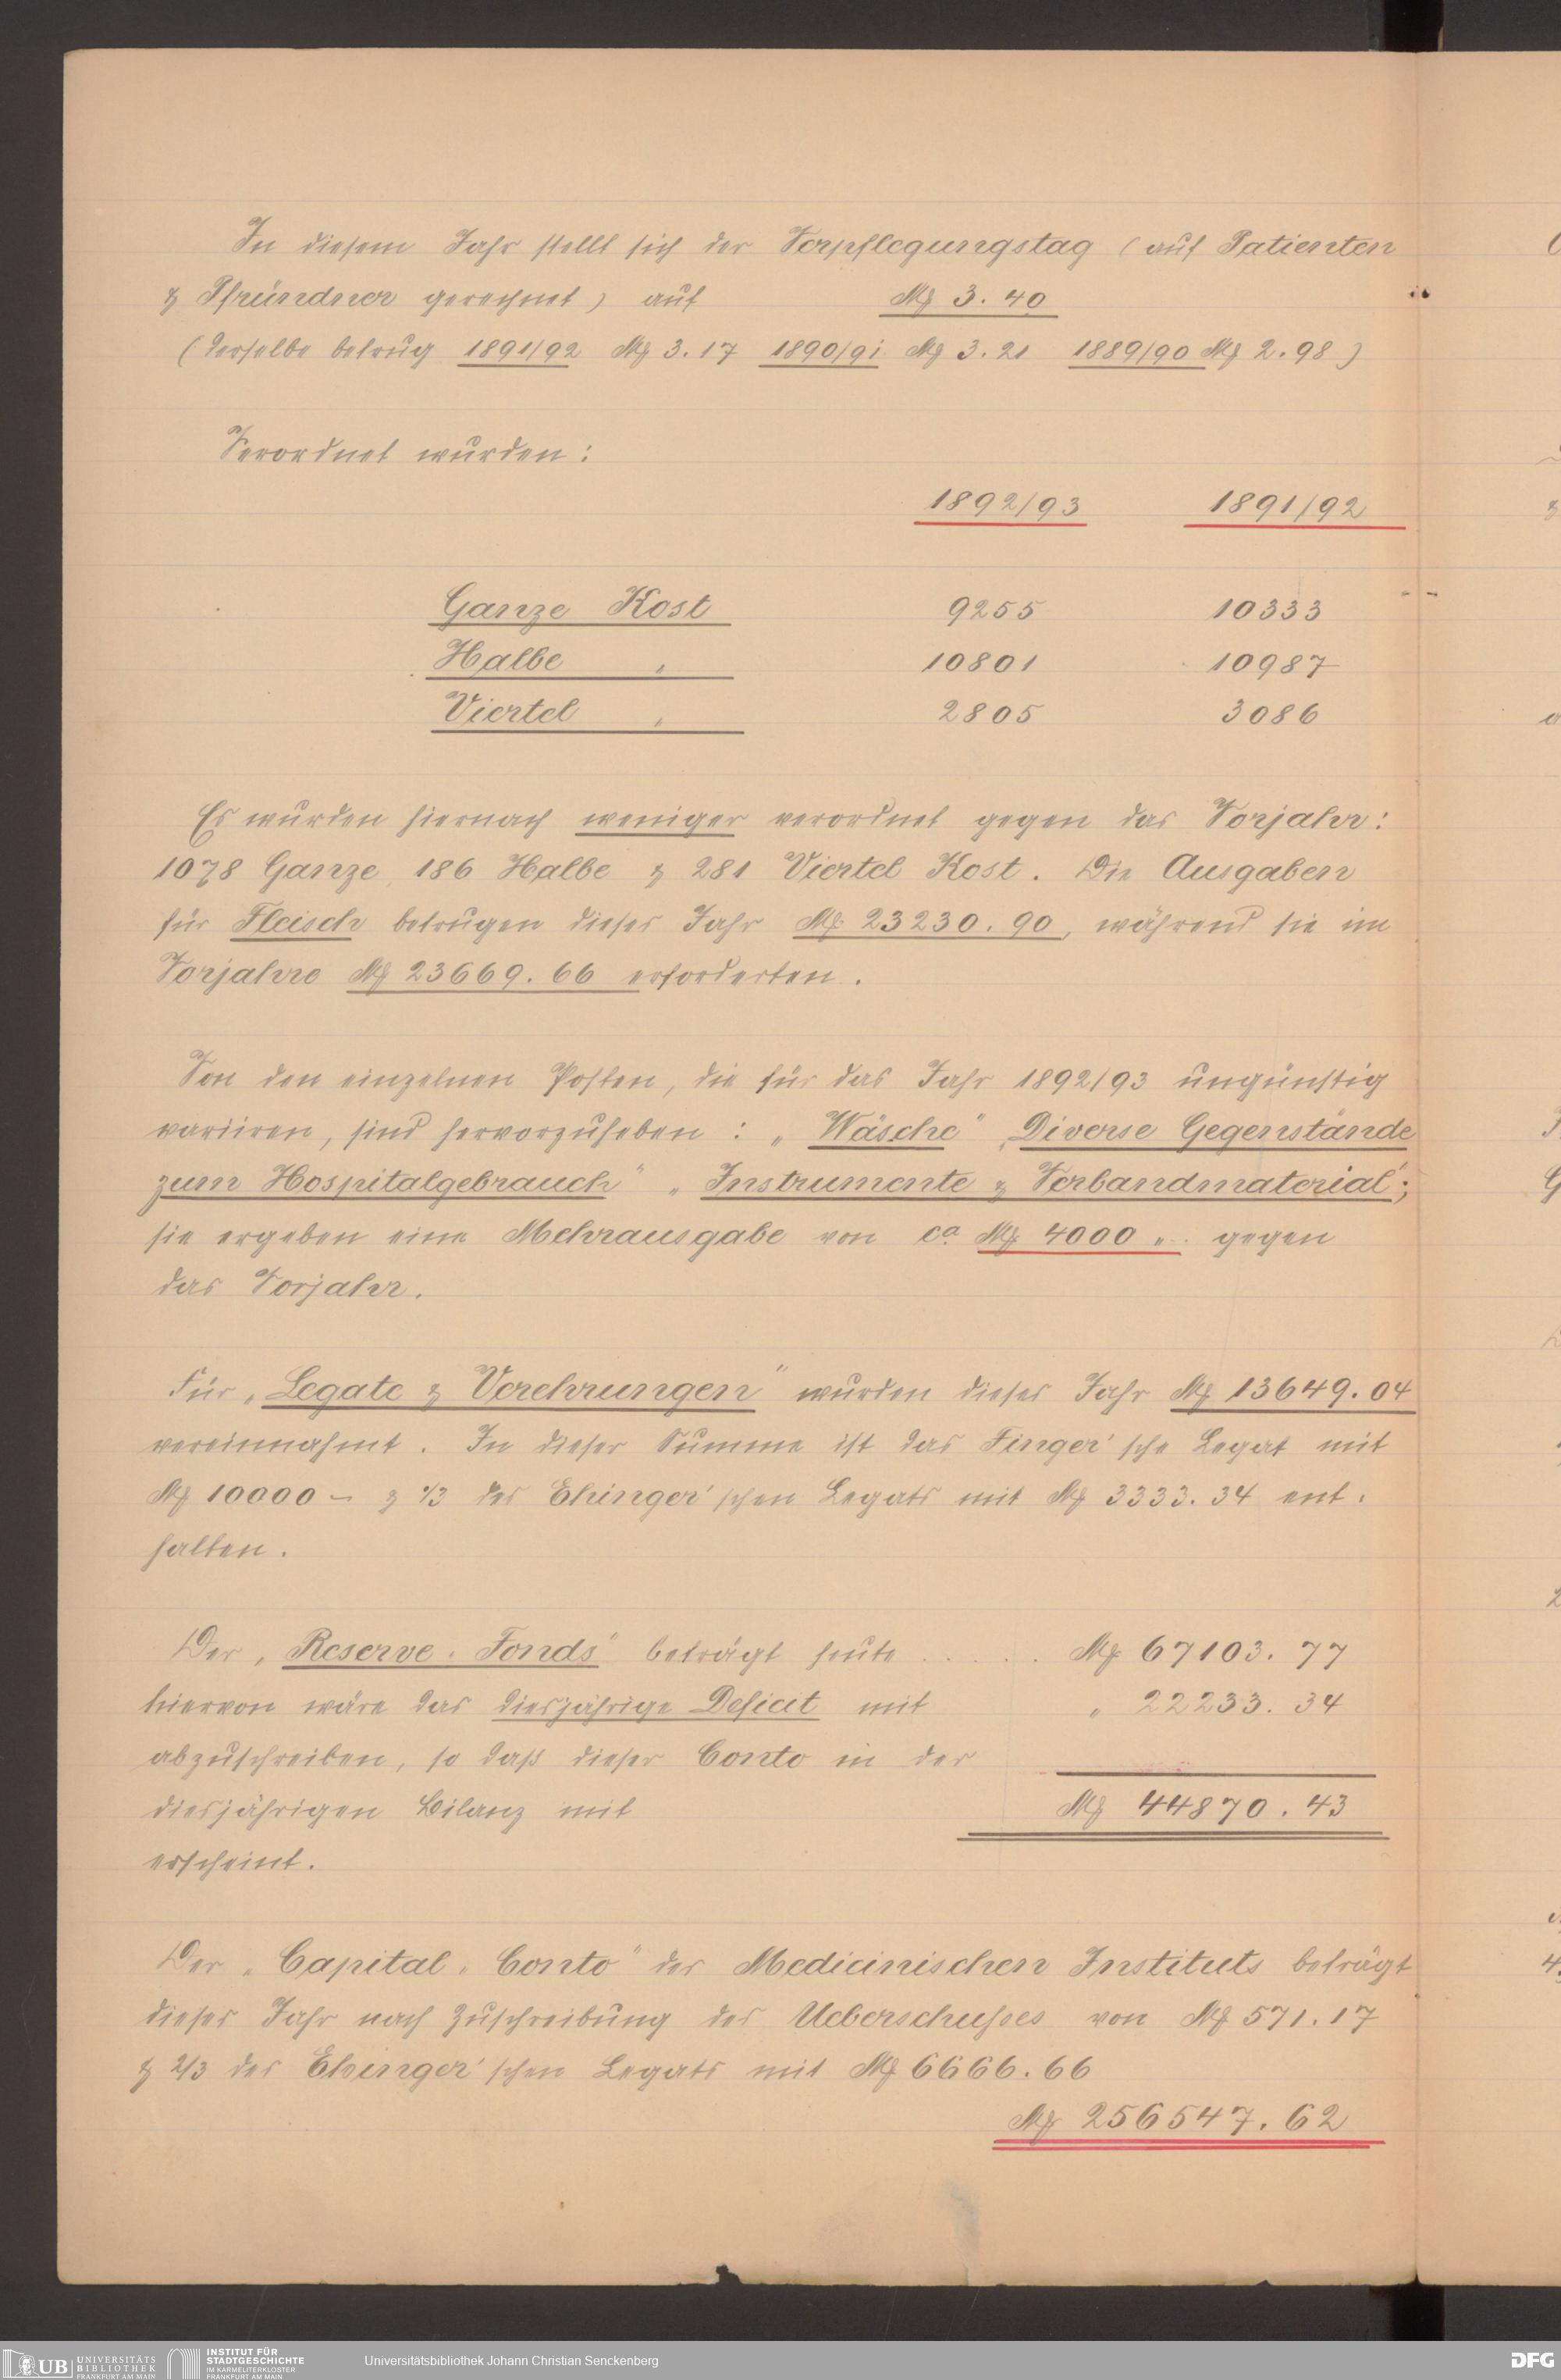 In diesem Jahr stellt sich der Verpflegungstag (auf Patienten
& Pfründner gerechnet) auf M 3.40
(derselbe betrug 1891/92 M 3.17 1890/91 M 3.21 1889/90 M 2.98)
Verordnet wurden:
1892/93 1891/92
Ganze Kost 9255 10333
Halbe " 10801 10987
Viertel " 2805 3086
Es wurden hiernach weniger verordnet gegen das Vorjahr:
1078 Ganze, 186 Halbe & 281 Viertel Kost. Die Ausgaben
für Fleisch betrugen dieses Jahr M 23230.90, während sie im
Vorjahre M 23669.66 erforderten.
Von den einzelnen Posten, die für das Jahr 1892/93 ungünstig
variiren, sind hervorzuheben: „Wäsche" „Diverse Gegenstände
zum Hospitalgebrauch" „Instrumente & Verbandmaterial";
sie ergeben eine Mehrausgabe von ca M 4000 „. gegen
das Vorjahr.
Für „Legate & Verehrungen" wurden dieses Jahr M 13649.04
vereinnahmt. In dieser Summe ist das Finger'sche Legat mit
M 10000 – & 1/3 des Ehinger'schen Legats mit M 3333.34 ent-
halten.
Der „Reserve-Fonds" beträgt heute . . . . . M 67103.77
hiervon wäre das diesjährige Deficit mit " 22233.34
abzuschreiben, so daß dieser Conto in der
diesjährigen Bilanz mit M 44870.43
erscheint.
Der „Capital-Conto" des Medicinischen Instituts beträgt
dieses Jahr nach Zuschreibung des Ueberschusses von M 571.17
& 2/3 des Ehinger'schen Legats mit M 6666.66
M 256547.62
UB UNIVERSITÄTS
BIBLIOTHEK
FRANKFURT AM MAIN
INSTITUT FÜR
STADTGESCHICHTE
IM KARMELITERKLOSTER
FRANKFURT AM MAIN
Universitätsbibliothek Johann Christian Senckenberg
DFG